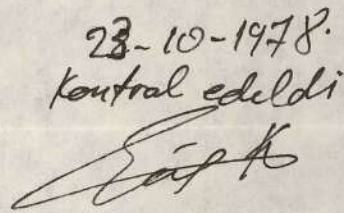 23-10-1978.
Kontrol edeldi